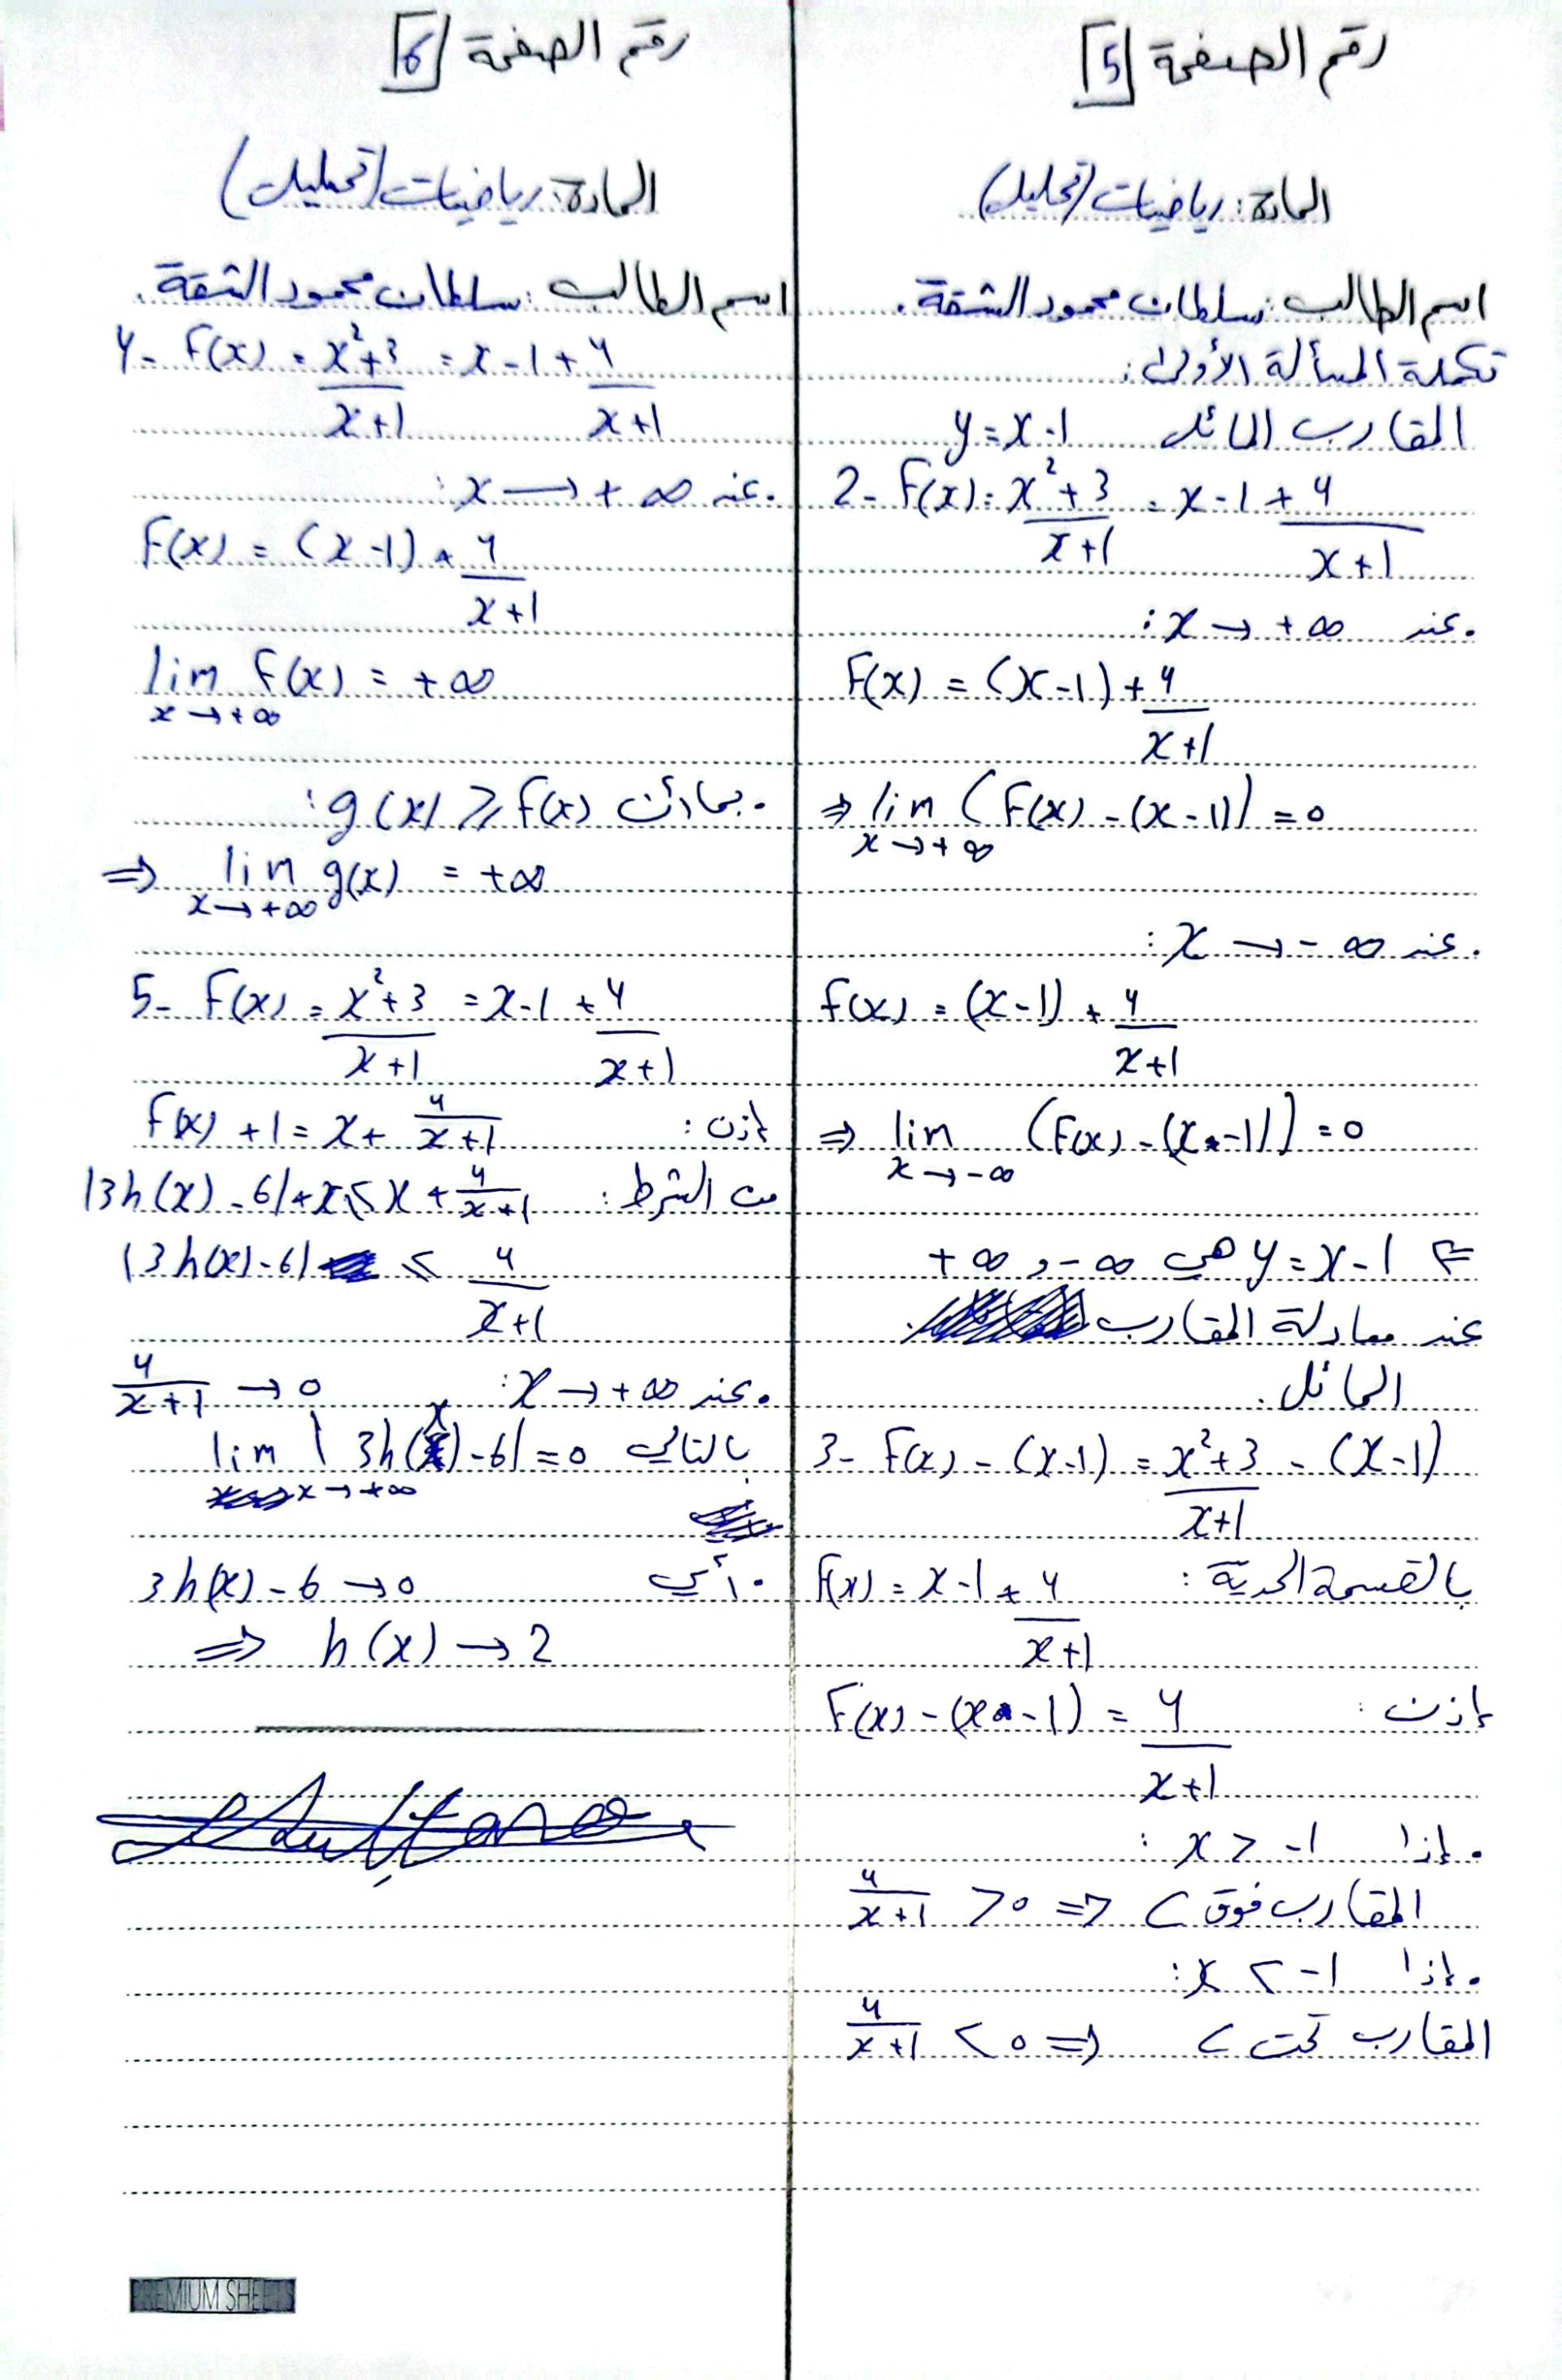 رقم الصفحة [5]
المادة: رياضيات (تحليل)
اسم الطالب: سلطان محمود الشقة.
تكملة المسألة الأولى:
المقارب المائل y = x - 1
2- f(x) = (x² + 3)/(x + 1) = x - 1 + 4/(x + 1)
. عند x → +∞ :
f(x) = (x - 1) + 4/(x + 1)
⇒ lim x→+∞ (f(x) - (x - 1)) = 0
. عند x → -∞ :
f(x) = (x - 1) + 4/(x + 1)
⇒ lim x→-∞ (f(x) - (x - 1)) = 0
⇐ y = x - 1 هي +∞ , -∞
عند معادلة المقارب
المائل.
3- f(x) - (x - 1) = (x² + 3)/(x + 1) - (x - 1)
بالقسمة الحدية: f(x) = x - 1 + 4/(x + 1)
إذن: f(x) - (x - 1) = 4/(x + 1)
. إذا x > -1 :
4/(x + 1) > 0 ⇒ C المقارب فوق
. إذا x < -1 :
4/(x + 1) < 0 ⇒ C المقارب تحت
رقم الصفحة [6]
المادة: رياضيات (تحليل)
اسم الطالب: سلطان محمود الشقة.
4- f(x) = (x² + 3)/(x + 1) = x - 1 + 4/(x + 1)
. عند x → +∞ :
f(x) = (x - 1) + 4/(x + 1)
lim x→+∞ f(x) = +∞
. بما أن g(x) ≥ f(x) :
⇒ lim x→+∞ g(x) = +∞
5- f(x) = (x² + 3)/(x + 1) = x - 1 + 4/(x + 1)
إذن: f(x) + 1 = x + 4/(x + 1)
من الشرط: |3h(x) - 6| + x ≤ x + 4/(x + 1)
|3h(x) - 6| ≤ 4/(x + 1)
. عند x → +∞ : 4/(x + 1) → 0
بالتالي lim x→+∞ |3h(x) - 6| = 0
. أي 3h(x) - 6 → 0
⇒ h(x) → 2
Sultan
PREMIUM SHEETS